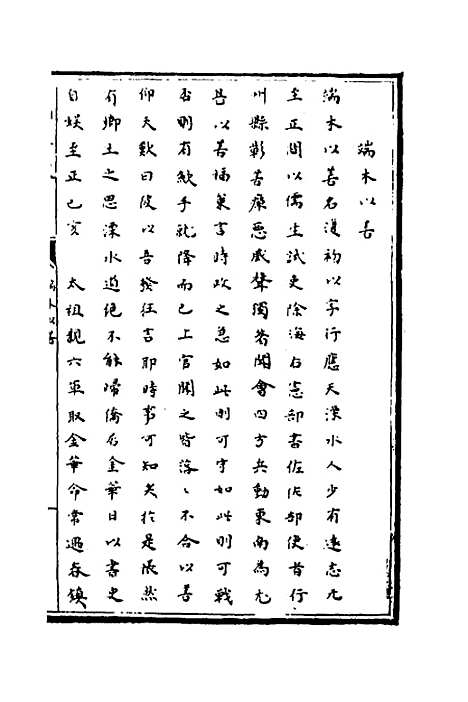 端木以善
端木以善名復初以字行應天溧水人少有遠志元
至正間以儒生試吏除海右憲部書佐佐部使者行
州縣彰善癉惡威聲獨著聞會四方兵動東南為尤
甚以善禍巢言時政之急如此則可守如此則可戰
否則有歛手就降而已上官聞之皆落〻不合以善
仰天歎曰彼以吾發狂言耶時事可知矣於是悵然
有鄉土之思溧水道絕不能歸僑居金華日以書史
自娛至正己亥 太祖親六軍取金華命常遇春鎮
端木以善